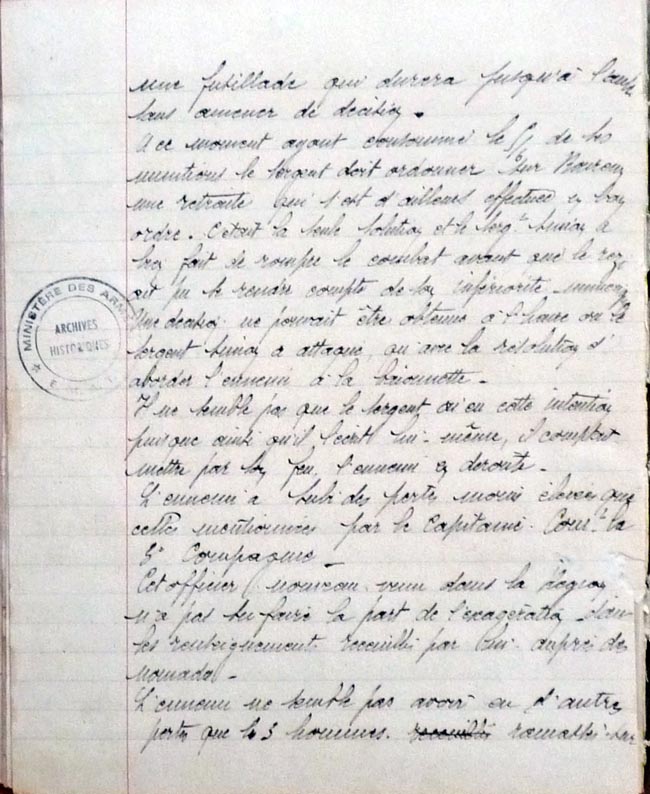 une fusillade qui durera jusqu'à l'aube
sans amener de décision.
A ce moment ayant consommé les 5/6 de ses
munitions le sergent doit ordonner sur
une retraite qui s'est d'ailleurs effectuée en bon
ordre. C'était la seule solution et le Serg.t a
bien fait de rompre le combat avant que le
ait pu se rendre compte de son infériorité
Une décision ne pouvait être obtenue à l'heure où le
sergent a attaqué, qu'avec la résolution d'
aborder l'ennemi à la baïonnette.
Il ne semble pas que le sergent ai eu cette intention
puisque ainsi qu'il l'écrit lui-même, il comptait
mettre par son feu, l'ennemi en déroute.
L'ennemi a subi des pertes moins élevées que
celles mentionnées par le Capitaine Com.t la
Compagnie.
Cet officier nouveau venu dans la région
n'a pas su faire la part de l'exagération dans
les renseignements recueillis par lui auprès des
nomades.
L'ennemi ne semble pas avoir eu d'autres
pertes que les 3 hommes recueillis ramassés sur
MINISTÈRE DES ARM
ARCHIVES
HISTORIQUES